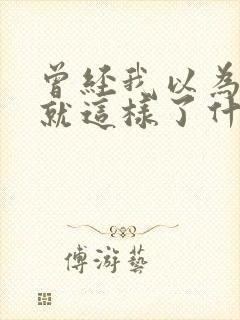 曾經我以為
就這樣了什
傅游藝